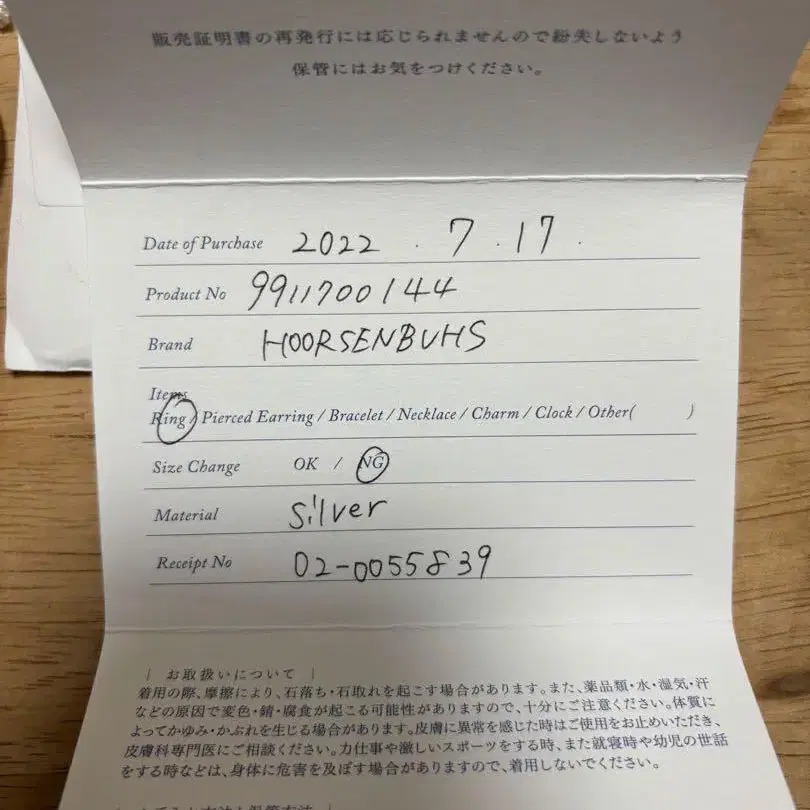 販売証明書の再発行には応じられませんので紛失しないよう
保管にはお気をつけください。
Date of Purchase 2022 . 7 . 17 .
Product No 9911700144
Brand HOORSENBUHS
Items
Ring / Pierced Earring / Bracelet / Necklace / Charm / Clock / Other( )
Size Change OK / NG
Material Silver
Receipt No 02-0055839
| お取扱いについて |
着用の際、摩擦により、石落ち・石取れを起こす場合があります。また、薬品類・水・湿気・汗
などの原因で変色・錆・腐食が起こる可能性がありますので、十分にご注意ください。体質に
よってかゆみ・かぶれを生じる場合があります。皮膚に異常を感じた時はご使用をお止めいただき、
皮膚科専門医にご相談ください。力仕事や激しいスポーツをする時、また就寝時や幼児の世話
をする時などは、身体に危害を及ぼす場合がありますので、着用しないでください。